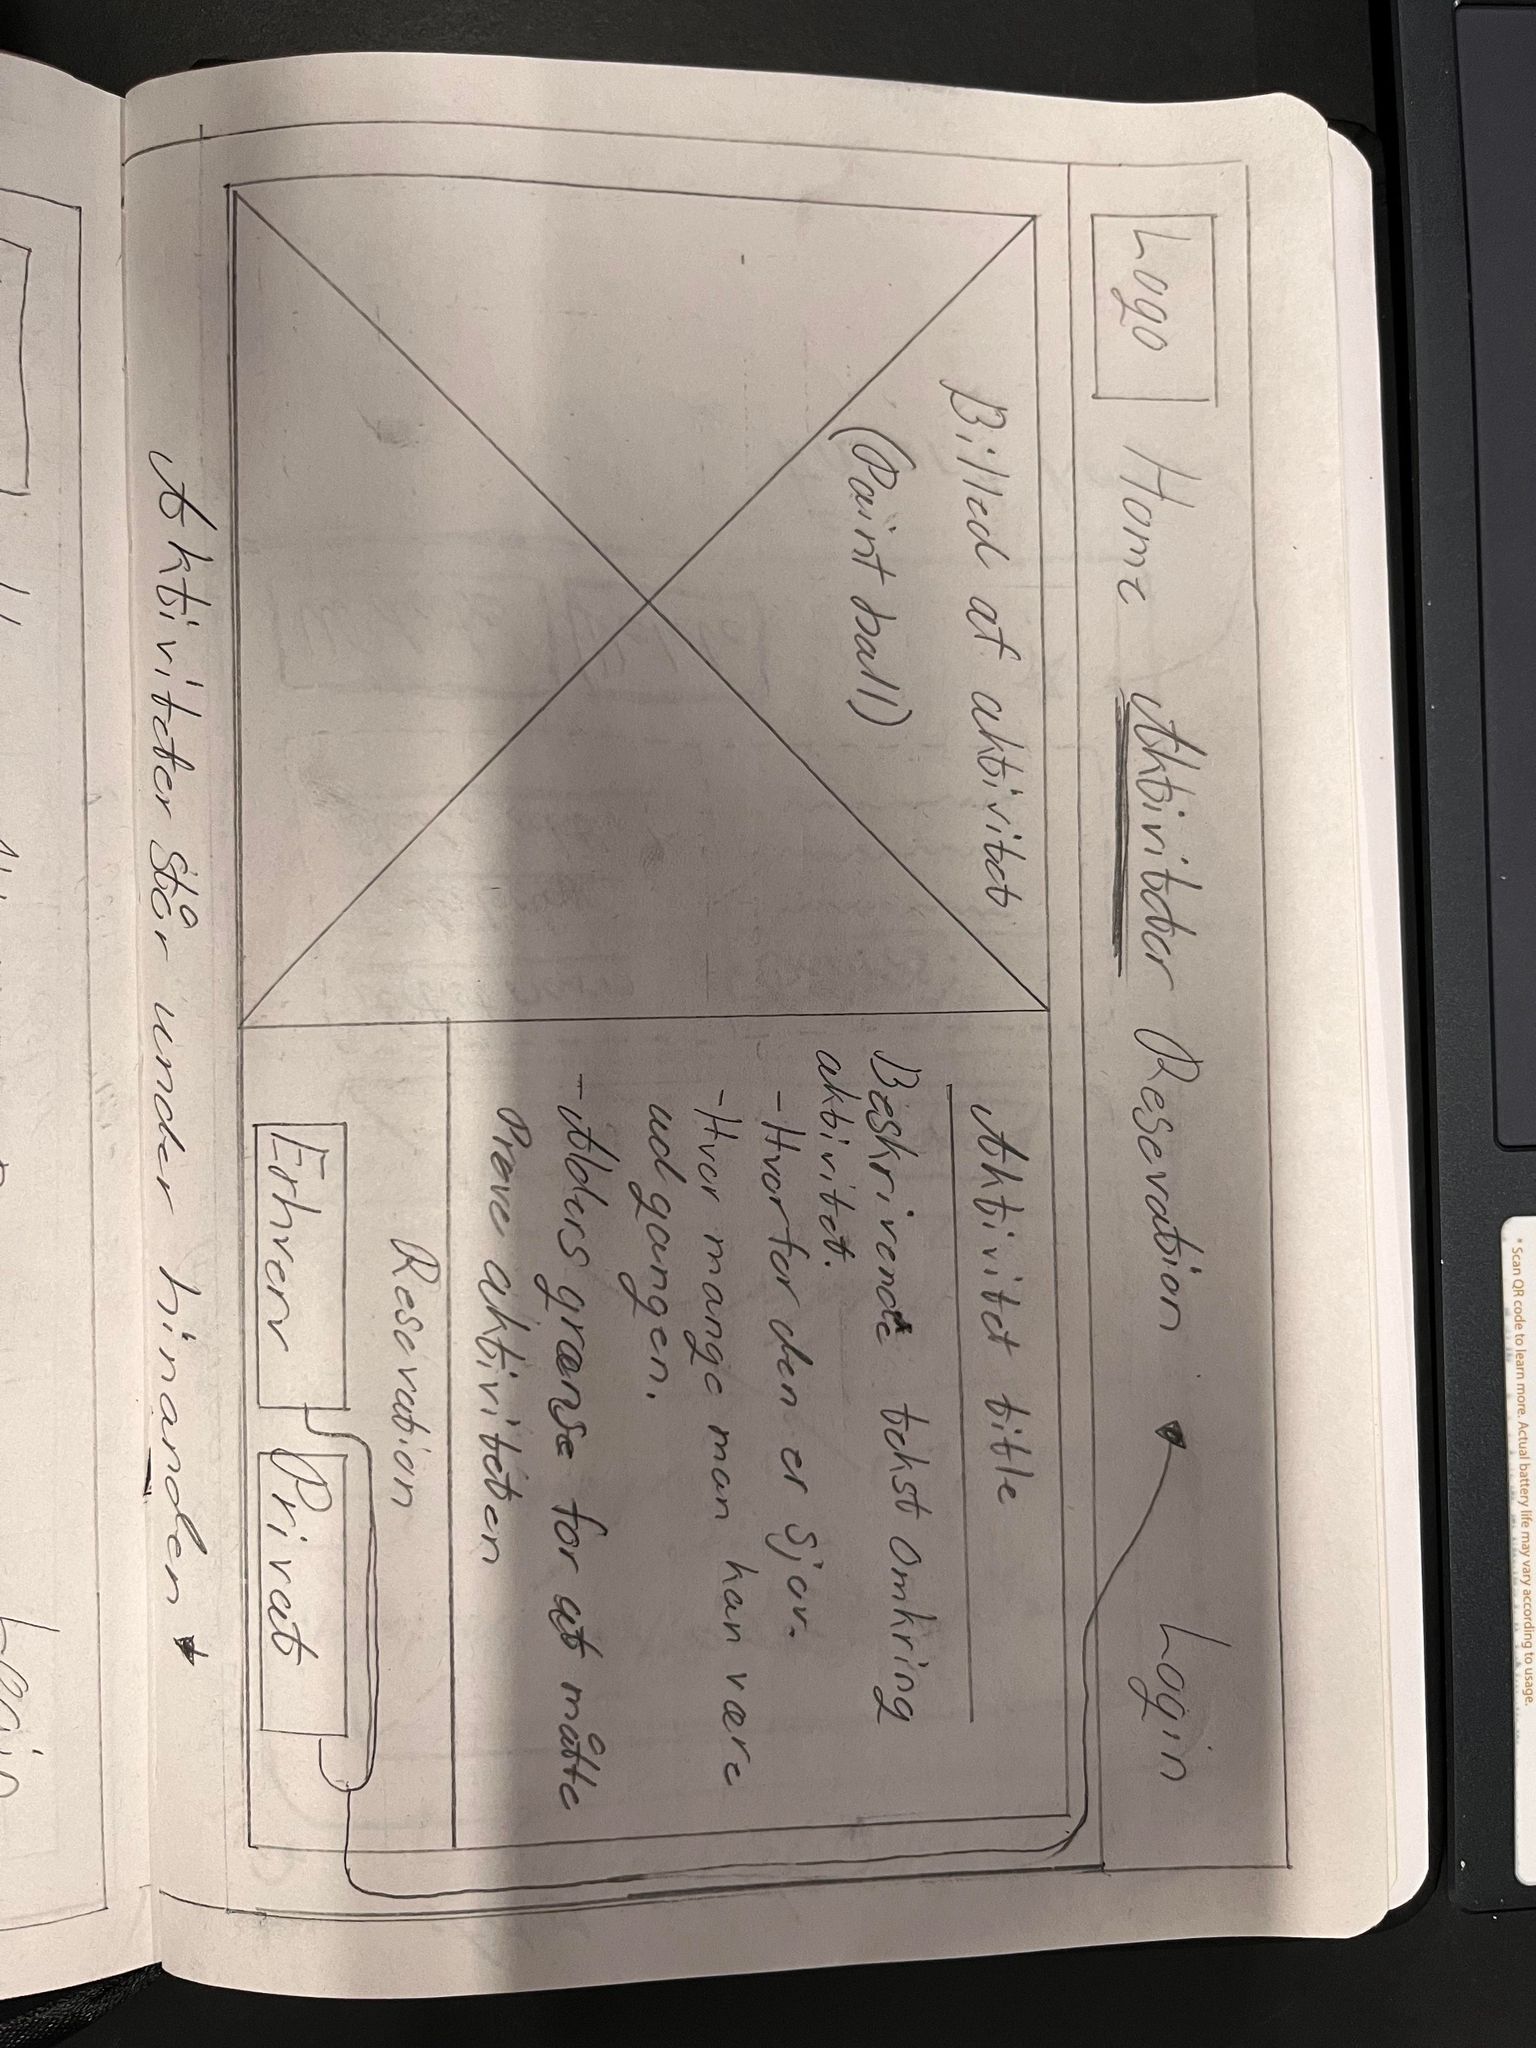 * Scan QR code to learn more. Actual battery life may vary according to usage.
Logo Home Aktiviteter Resevation Login
Billed af aktivitet
(Paintball)
Aktivitet title
Beskrivende tekst omkring
aktivitet.
- Hvorfor den er sjov.
- Hvor mange man kan være
ud gangen.
- Alders grænse for at måtte
Prøve aktiviteten
Resevation
Erhverv Privat
Aktiviteter står under hinanden
Login